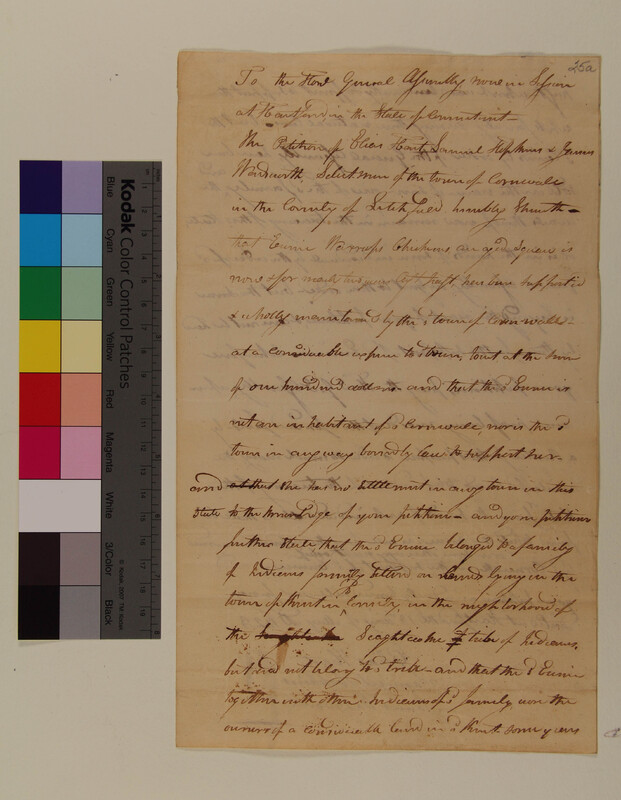 25a
To the Honl General Assembly now in Session
at Hartford in the State of Connecticut
The Petition of Elias Hart, Samuel Hopkins & James
Wadsworth, Selectmen of the town of Cornwall
in the County of Litchfield humbly Sheweth—
that Eunice Warrups Chickens an aged Squaw is
now & for much time past hath been supported
& wholly maintd by the s town of Cornwall—
at a considerable expence to them, to wit at the sum
of one hundred dollars— and that the s Eunice is
not an inhabitant of s Cornwall, nor is the s
town in any way bound by law to support her—
and she has no settlement in any town in this
State to the knowledge of your petitioners— and your petitioners
further state, that the s Eunice belonged to a family
of Indians formerly settled on lands lying in the
town of Kent in s County, in the neighborhood of
the Scaghticoke tribe of Indians,
but did not belong to s tribe— and that the s Eunice
together with other Indians of s family were the
owners of a considerable land in s Kent some years
Kodak
Color Control Patches
Blue
Cyan
Green
Yellow
Red
Magenta
White
3/Color
Black
© Kodak, 2007 TM: Kodak